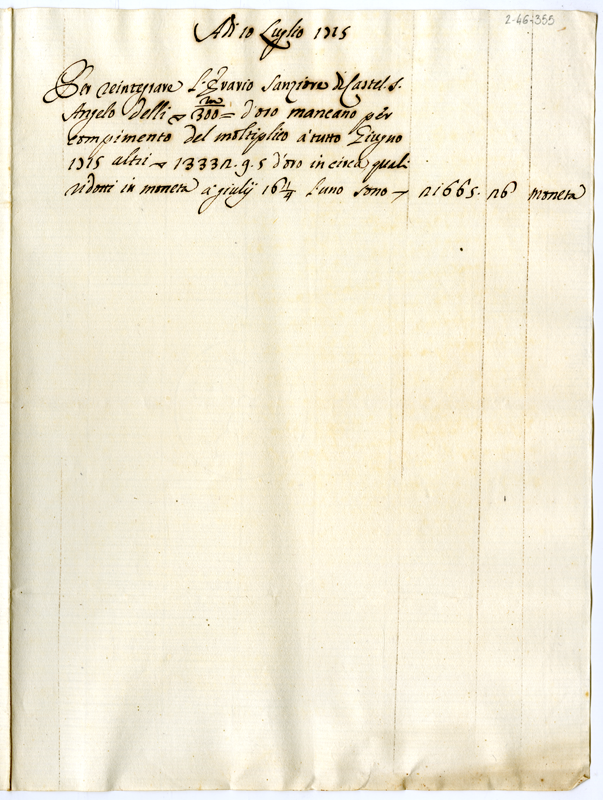 2-46-355
Adi 10 Luglio 1715
Per reintegrare l'Erario Sanziore di Castel S.
Angelo delli ∇ 300 m = d'oro mancano per
compimento del moltiplico a' tutto Giugno
1715 altri ∇ 13332. 9. 5 d'oro in circa quali
ridotti in moneta a' giulij 16 1/4 l'uno sono ∇ 21665. 26 moneta